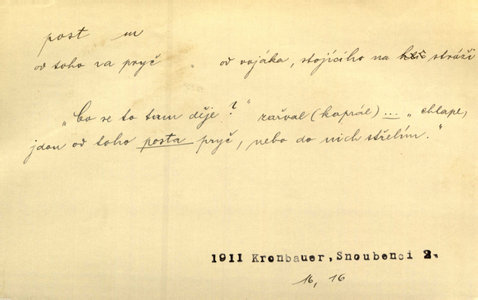 post m
od toho va pryč . od vojáka, stojícího na stráži
„Co se to tam děje?" zařval (kaprál) ... „chlape,
jdou od toho posta pryč, nebo do nich střelím."
1911 Kronbauer, Snoubenci 2.
16, 16